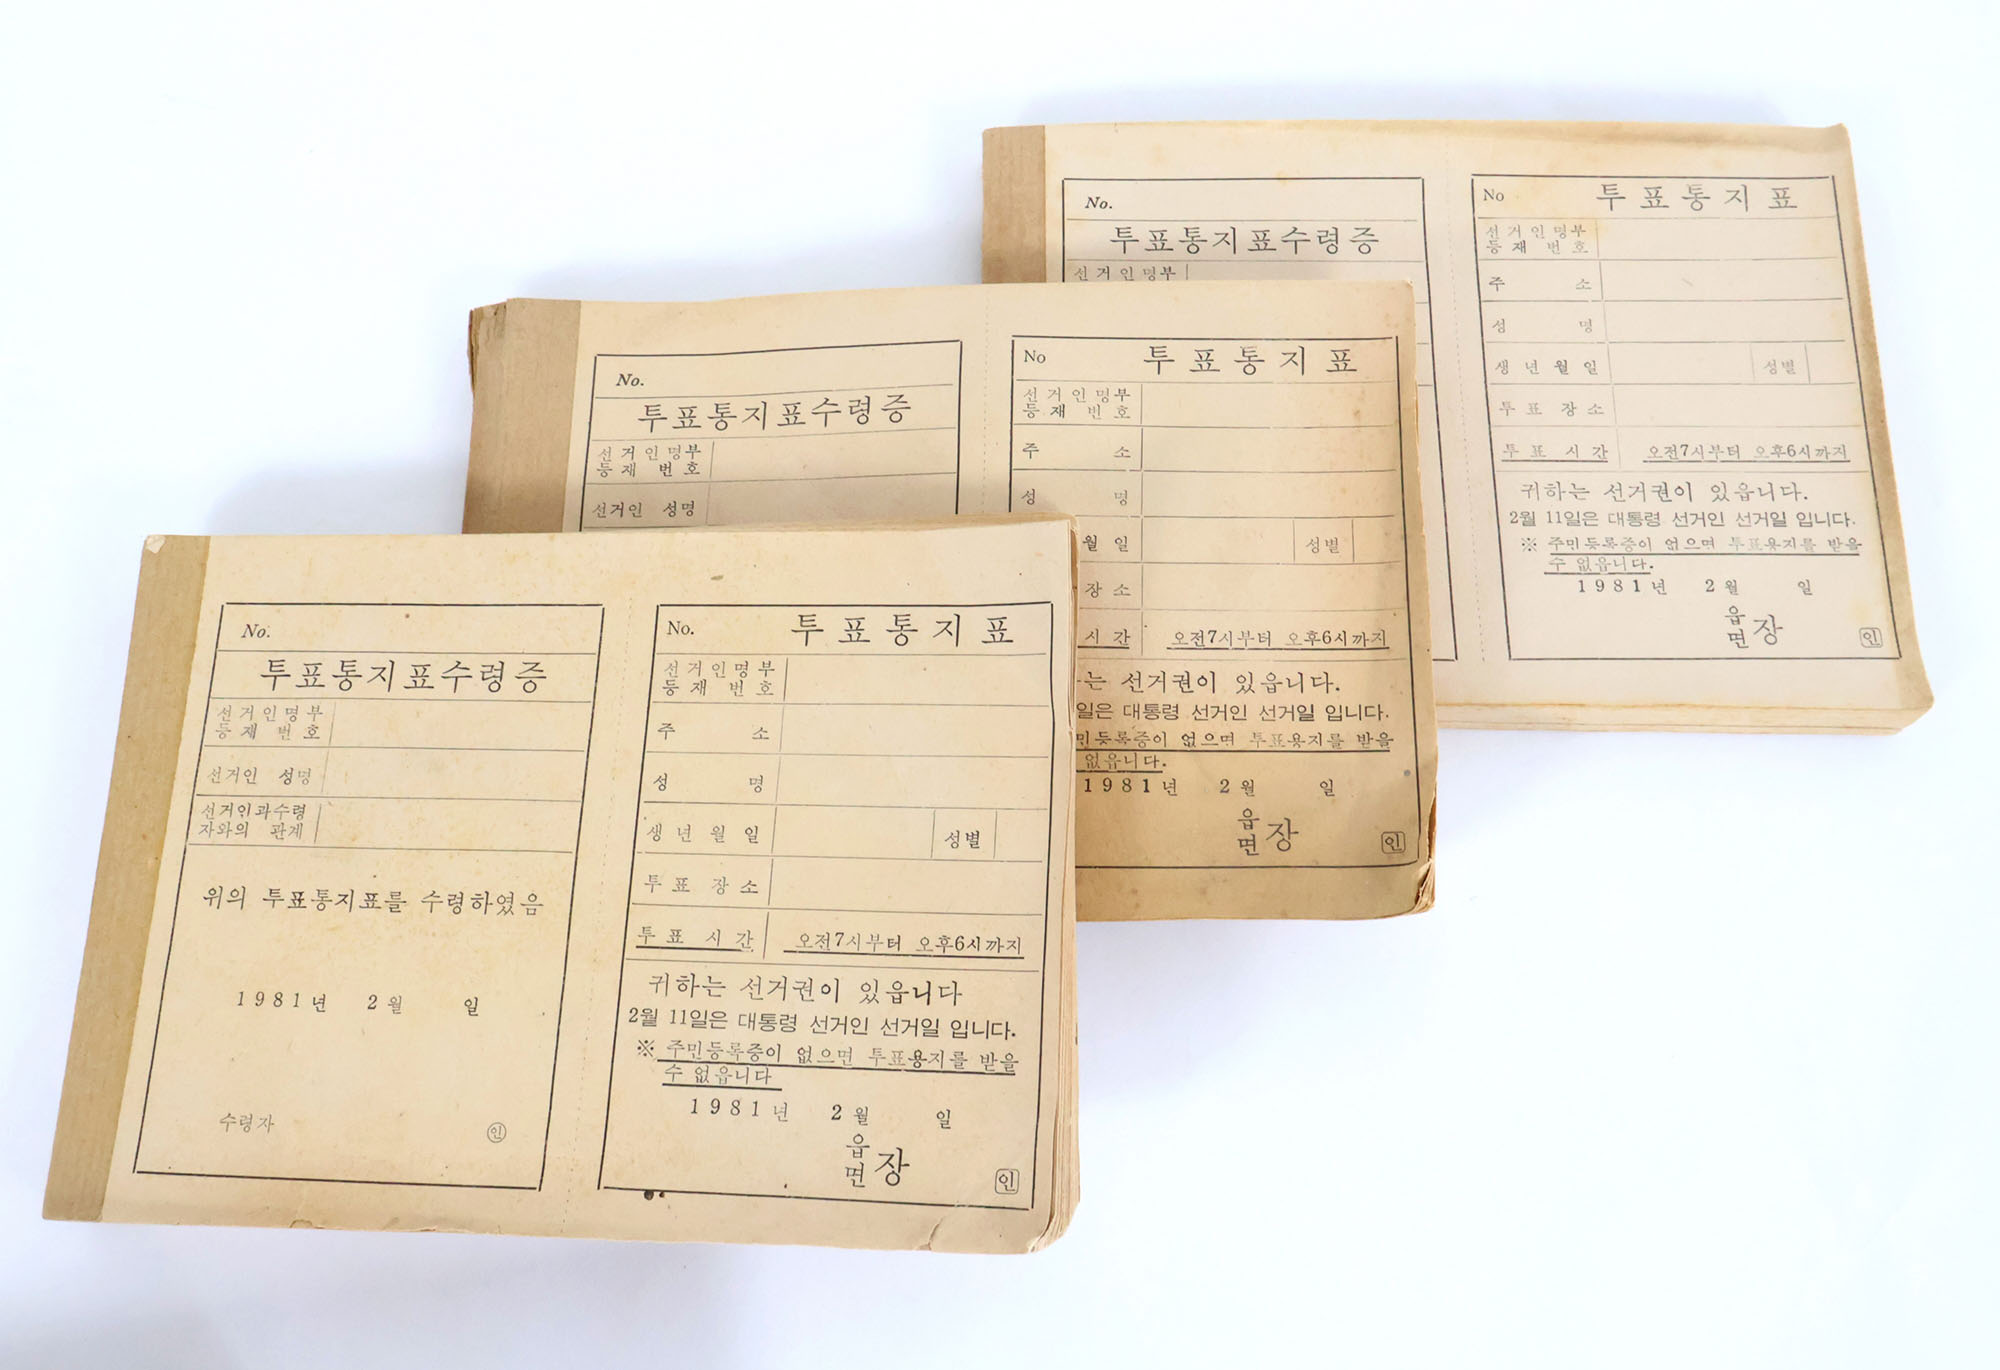 No.
투표통지표수령증
선거인명부
등재 번호
선거인 성명
선거인과수령
자와의 관계
위의 투표통지표를 수령하였음
1981년 2월 일
수령자 인
No. 투표통지표
선거인명부
등재 번호
주 소
성 명
생년월일 성별
투표 장소
투표 시간 오전7시부터 오후6시까지
귀하는 선거권이 있읍니다
2월 11일은 대통령 선거인 선거일 입니다.
※ 주민등록증이 없으면 투표용지를 받을
수 없읍니다
1981년 2월 일
읍
면 장 인
No.
투표통지표수령증
선거인명부
등재 번호
선거인 성명
No 투표통지표
선거인명부
등재 번호
주 소
성 명
월일 성별
장소
시간 오전7시부터 오후6시까지
는 선거권이 있읍니다.
일은 대통령 선거인 선거일 입니다.
민등록증이 없으면 투표용지를 받을
없읍니다.
1981년 2월 일
읍
면 장 인
No.
투표통지표수령증
선거인명부
No 투표통지표
선거인명부
등재 번호
주 소
성 명
생년월일 성별
투표 장소
투표 시간 오전7시부터 오후6시까지
귀하는 선거권이 있읍니다.
2월 11일은 대통령 선거인 선거일 입니다.
※ 주민등록증이 없으면 투표용지를 받을
수 없읍니다.
1981년 2월 일
읍
면 장 인